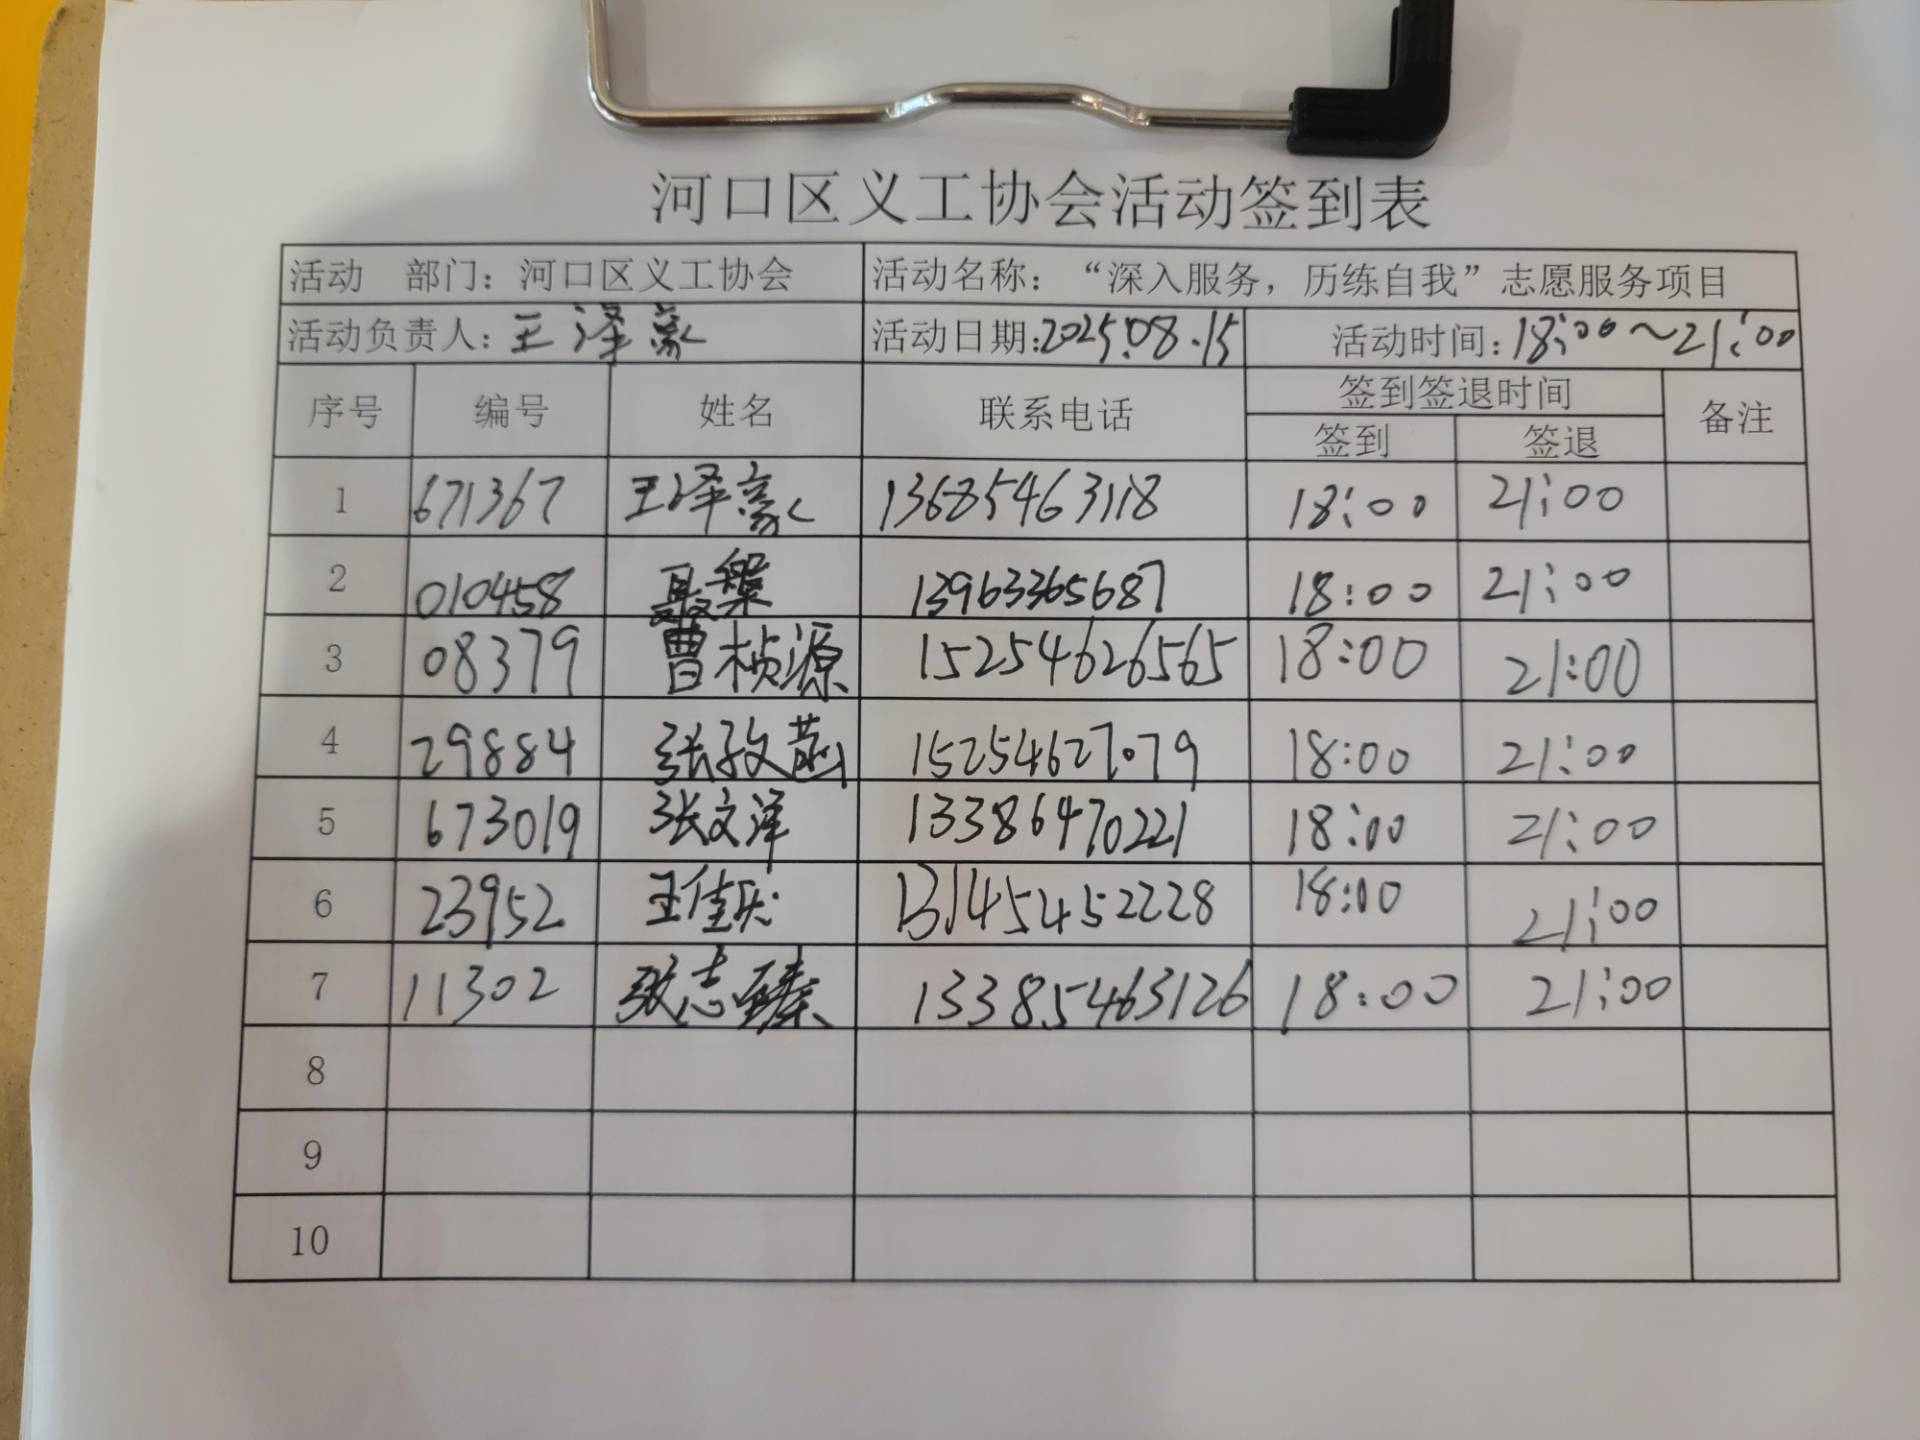 河口区义工协会活动签到表
活动 部门：河口区义工协会 活动名称：“深入服务，历练自我”志愿服务项目
活动负责人：王泽豪 活动日期：2025.08.15 活动时间：18:00～21:00
序号 编号 姓名 联系电话 签到签退时间 备注
签到 签退
1 671367 王泽豪 13685463118 18:00 21:00
2 010458 聂槃 13963365687 18:00 21:00
3 08379 曹桢源 15254626565 18:00 21:00
4 29884 张孜菡 15254627079 18:00 21:00
5 673019 张文洋 13386470221 18:00 21:00
6 23952 王佳 13145452228 18:00 21:00
7 11302 张志臻 13385463126 18:00 21:00
8
9
10